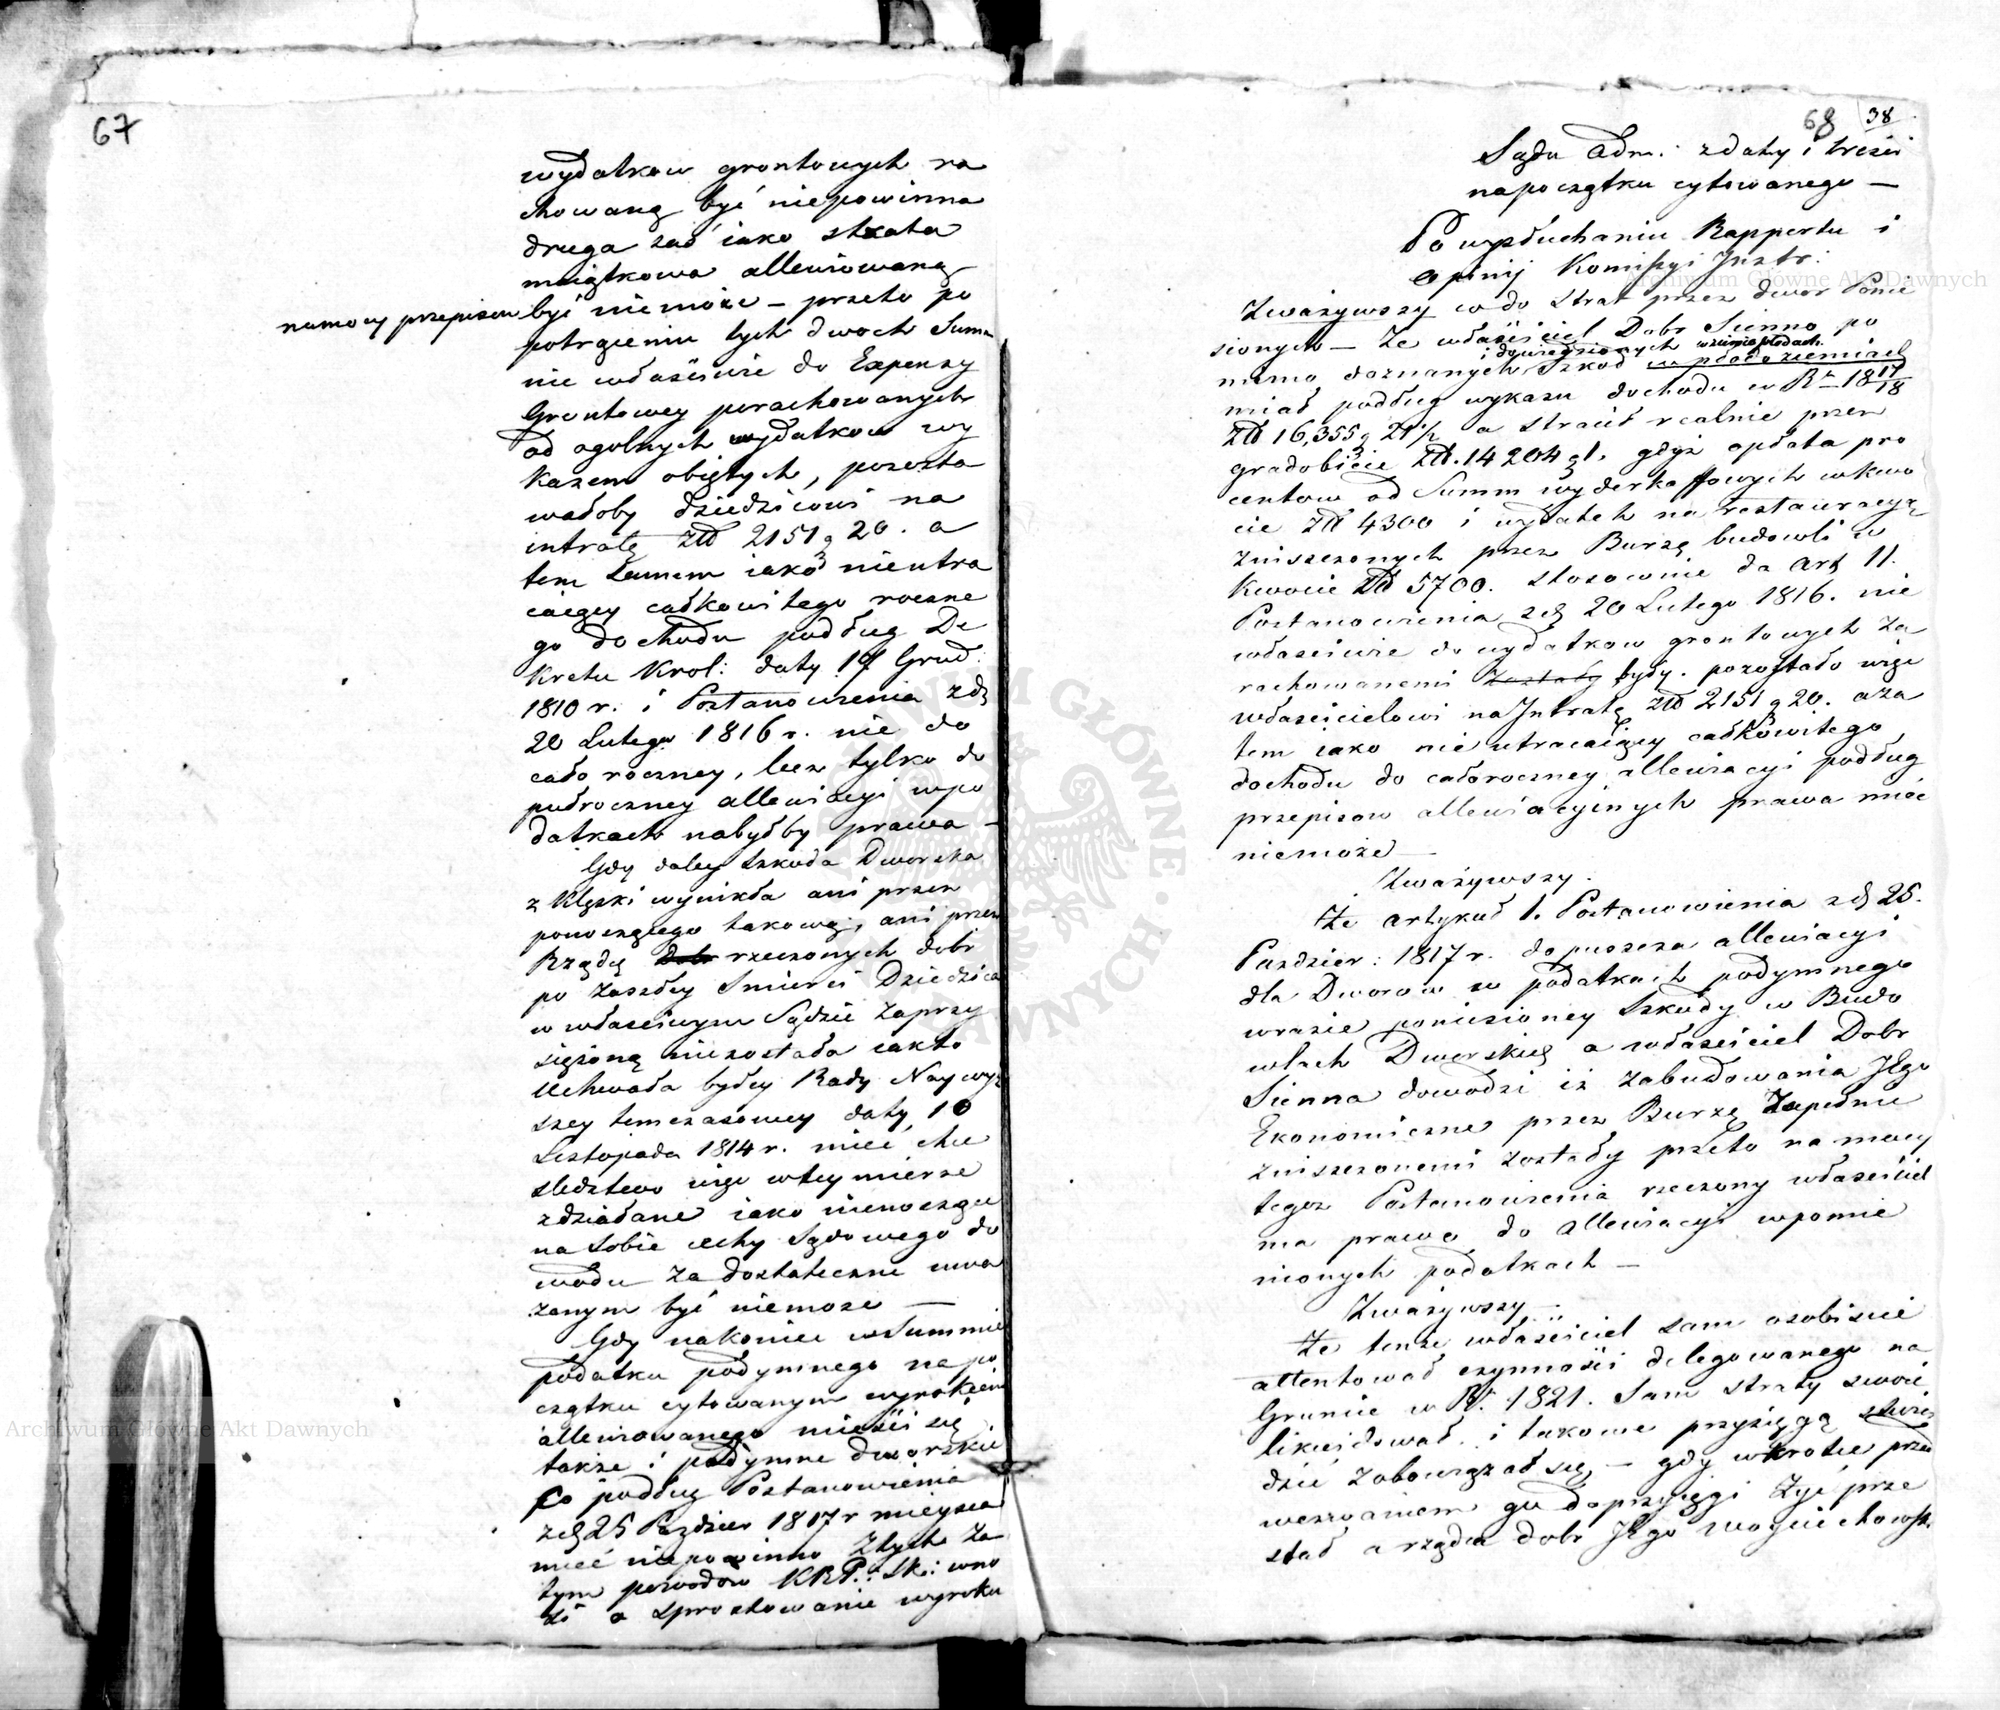 67
wydatkow grontowych ra
chowaną być niepowinna
druga zaś iako strata
maiątkowa alleviowaną
na mocy przepisow być niemoże — przeto po
potrąceniu tych dwoch Summ
nie właściwie do Expensy
Grontowey porachowanych
od ogolnych wydatkow wy
kazem obiętych, pozosta
wałoby dziedzicowi na
intratę Złł 2151 g 20. a
tem samem iako nieutra
caiący całkowitego roczne
go dochodu podług De
kretu Krol: daty 19 Grud:
1810 r. i Postanowienia zd
20 Lutego 1816 r. nie do
cało roczney, lecz tylko do
pułroczney allewiacyi w po
datkach nabyłby prawa —
Gdy daley szkoda Dworska
z klęski wynikła ani przez
ponoszącego takową, ani przez
Rządcę dobr rzeczonych dobr
po zaszłey Smierci Dziedzica
w właściwym Sądzie zaprzy
siężoną niezostała iak to
Uchwała byłey Rady Naywyż
szey temczasowey daty 10
Listopada 1814 r. mieć chce
sledztwo więc w tey mierze
zdziałane iako nienoszące
na sobie cechy Sądowego do
wodu za dostateczne uwa
żanym być niemoże —
Gdy nakoniec w Summie
podatku podymnego na po
czątku cytowanym wyrokiem
allewiowanego mieści się
także i podymne dworskie
co podług Postanowienia
zd 25 Pazdzier 1817 r mieysca
mieć niepowinno z tych za
tym powodow KRP.: Sk: wno
si o sprostowanie wyroku
68 38
Sądu Adm: z daty i treści
na początku cytowanego —
Po wysłuchaniu Rapportu i
opinij Komissyi Instr:
Zważywszy co do strat przez dwor Ponie
sionych — Że właściciel Dobr Sienno po
i dowiedzionych w ziemiopłodach.
mimo doznanych Szkod w płodo ziemiach
miał podług wykazu dochodu w Rr 18 17/18
Złł 16,355 g 21 1/2 a stracił realnie przez
gradobicie Złł. 14204 g 1. gdyż opłata pro
centow od Summ wyderkaffowych w kwo
cie Złł 4300 i wydatek na restauracyą
zniszczonych przez Burzę budowli w
kwocie Złł 5700. stosownie do art 11.
Postanowienia zd 20 Lutego 1816. nie
właściwie do wydatkow grontowych za
rachowanemi zostały były. pozostało więc
właścicielowi na Intratę Złł 2151 g 20. a za
tem iako nie utracaiący całkowitego
dochodu do całoroczney allewiacyi podług
przepisow allewiacyinych prawa mieć
niemoże —
Zważywszy.
Że artykuł 1. Postanowienia zd 25.
Pazdzier: 1817 r. dopuszcza allewiacyi
dla Dworow w podatkach podymnego
w razie poniesioney Szkody w Budo
wlach Dworskich a właściciel Dobr
Sienna dowodzi iż zabudowania Jego
Ekonomiczne przez Burzę zupełnie
zniszczonemi zostały przeto na mocy
tegoż Postanowienia rzeczony właściciel
ma prawo do allewiacyi w pomie
nionych podatkach —
Zważywszy —
Że tenże właściciel sam osobiscie
attentował czynności delegowanego na
Gruncie w Rr. 1821. Sam straty swoie
likwidował i takowe przysięgą stwier
dzić zobowiązał się — gdy wkrotce przed
wezwaniem go do przysięgi żyć prze
stał a rządca dobr Jego Woyciechowsk.
Archiwum Główne Akt Dawnych
Archiwum Główne Akt Dawnych
ARCHIWUM GŁÓWNE AKT DAWNYCH